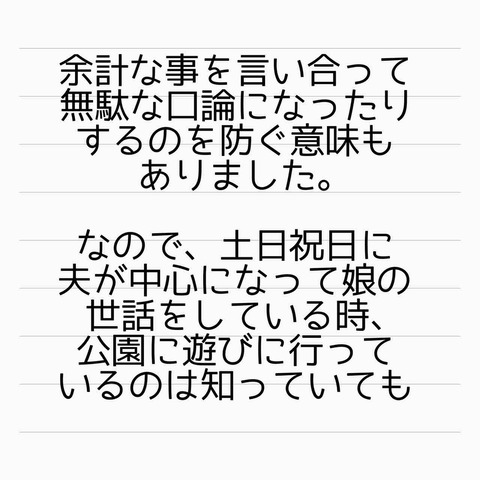 余計な事を言い合って
無駄な口論になったり
するのを防ぐ意味も
ありました。
なので、土日祝日に
夫が中心になって娘の
世話をしている時、
公園に遊びに行って
いるのは知っていても